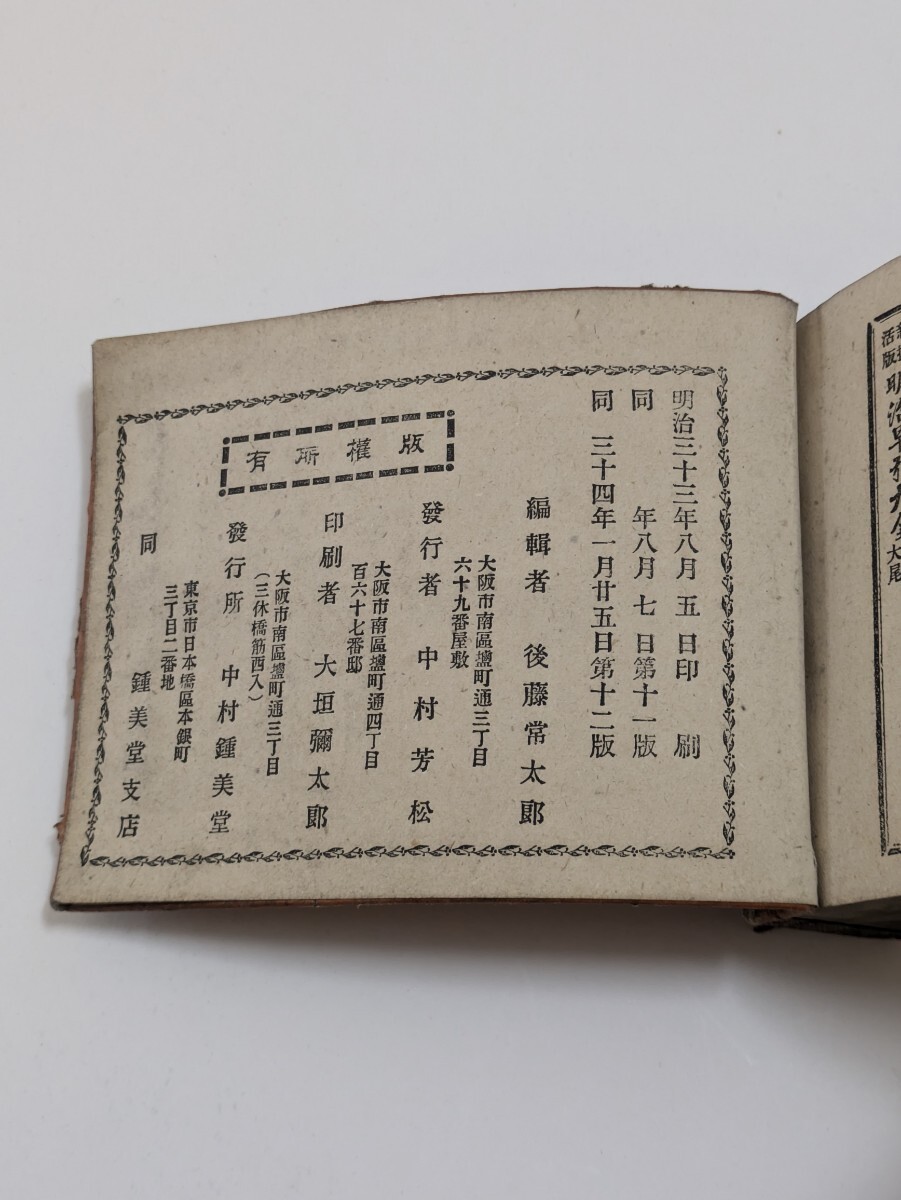 明治三十三年八月五日印刷
同年八月七日第十一版
同三十四年一月廿五日第十二版
編輯者 後藤常太郎
大阪市南區鹽町通三丁目
六十九番屋敷
發行者 中村芳松
大阪市南區鹽町通四丁目
百六十七番邸
印刷者 大垣彌太郎
大阪市南區鹽町通三丁目
（三休橋筋西入）
發行所 中村鍾美堂
東京市日本橋區本銀町
三丁目二番地
同 鍾美堂支店
版權所有
活版
明治
大尾